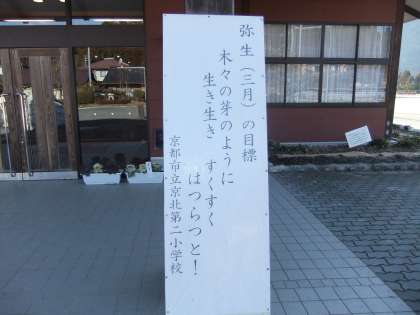 弥生（三月）の目標
木々の芽のように
生き生き　すくすく
はつらつと！
京都市立京北第二小学校